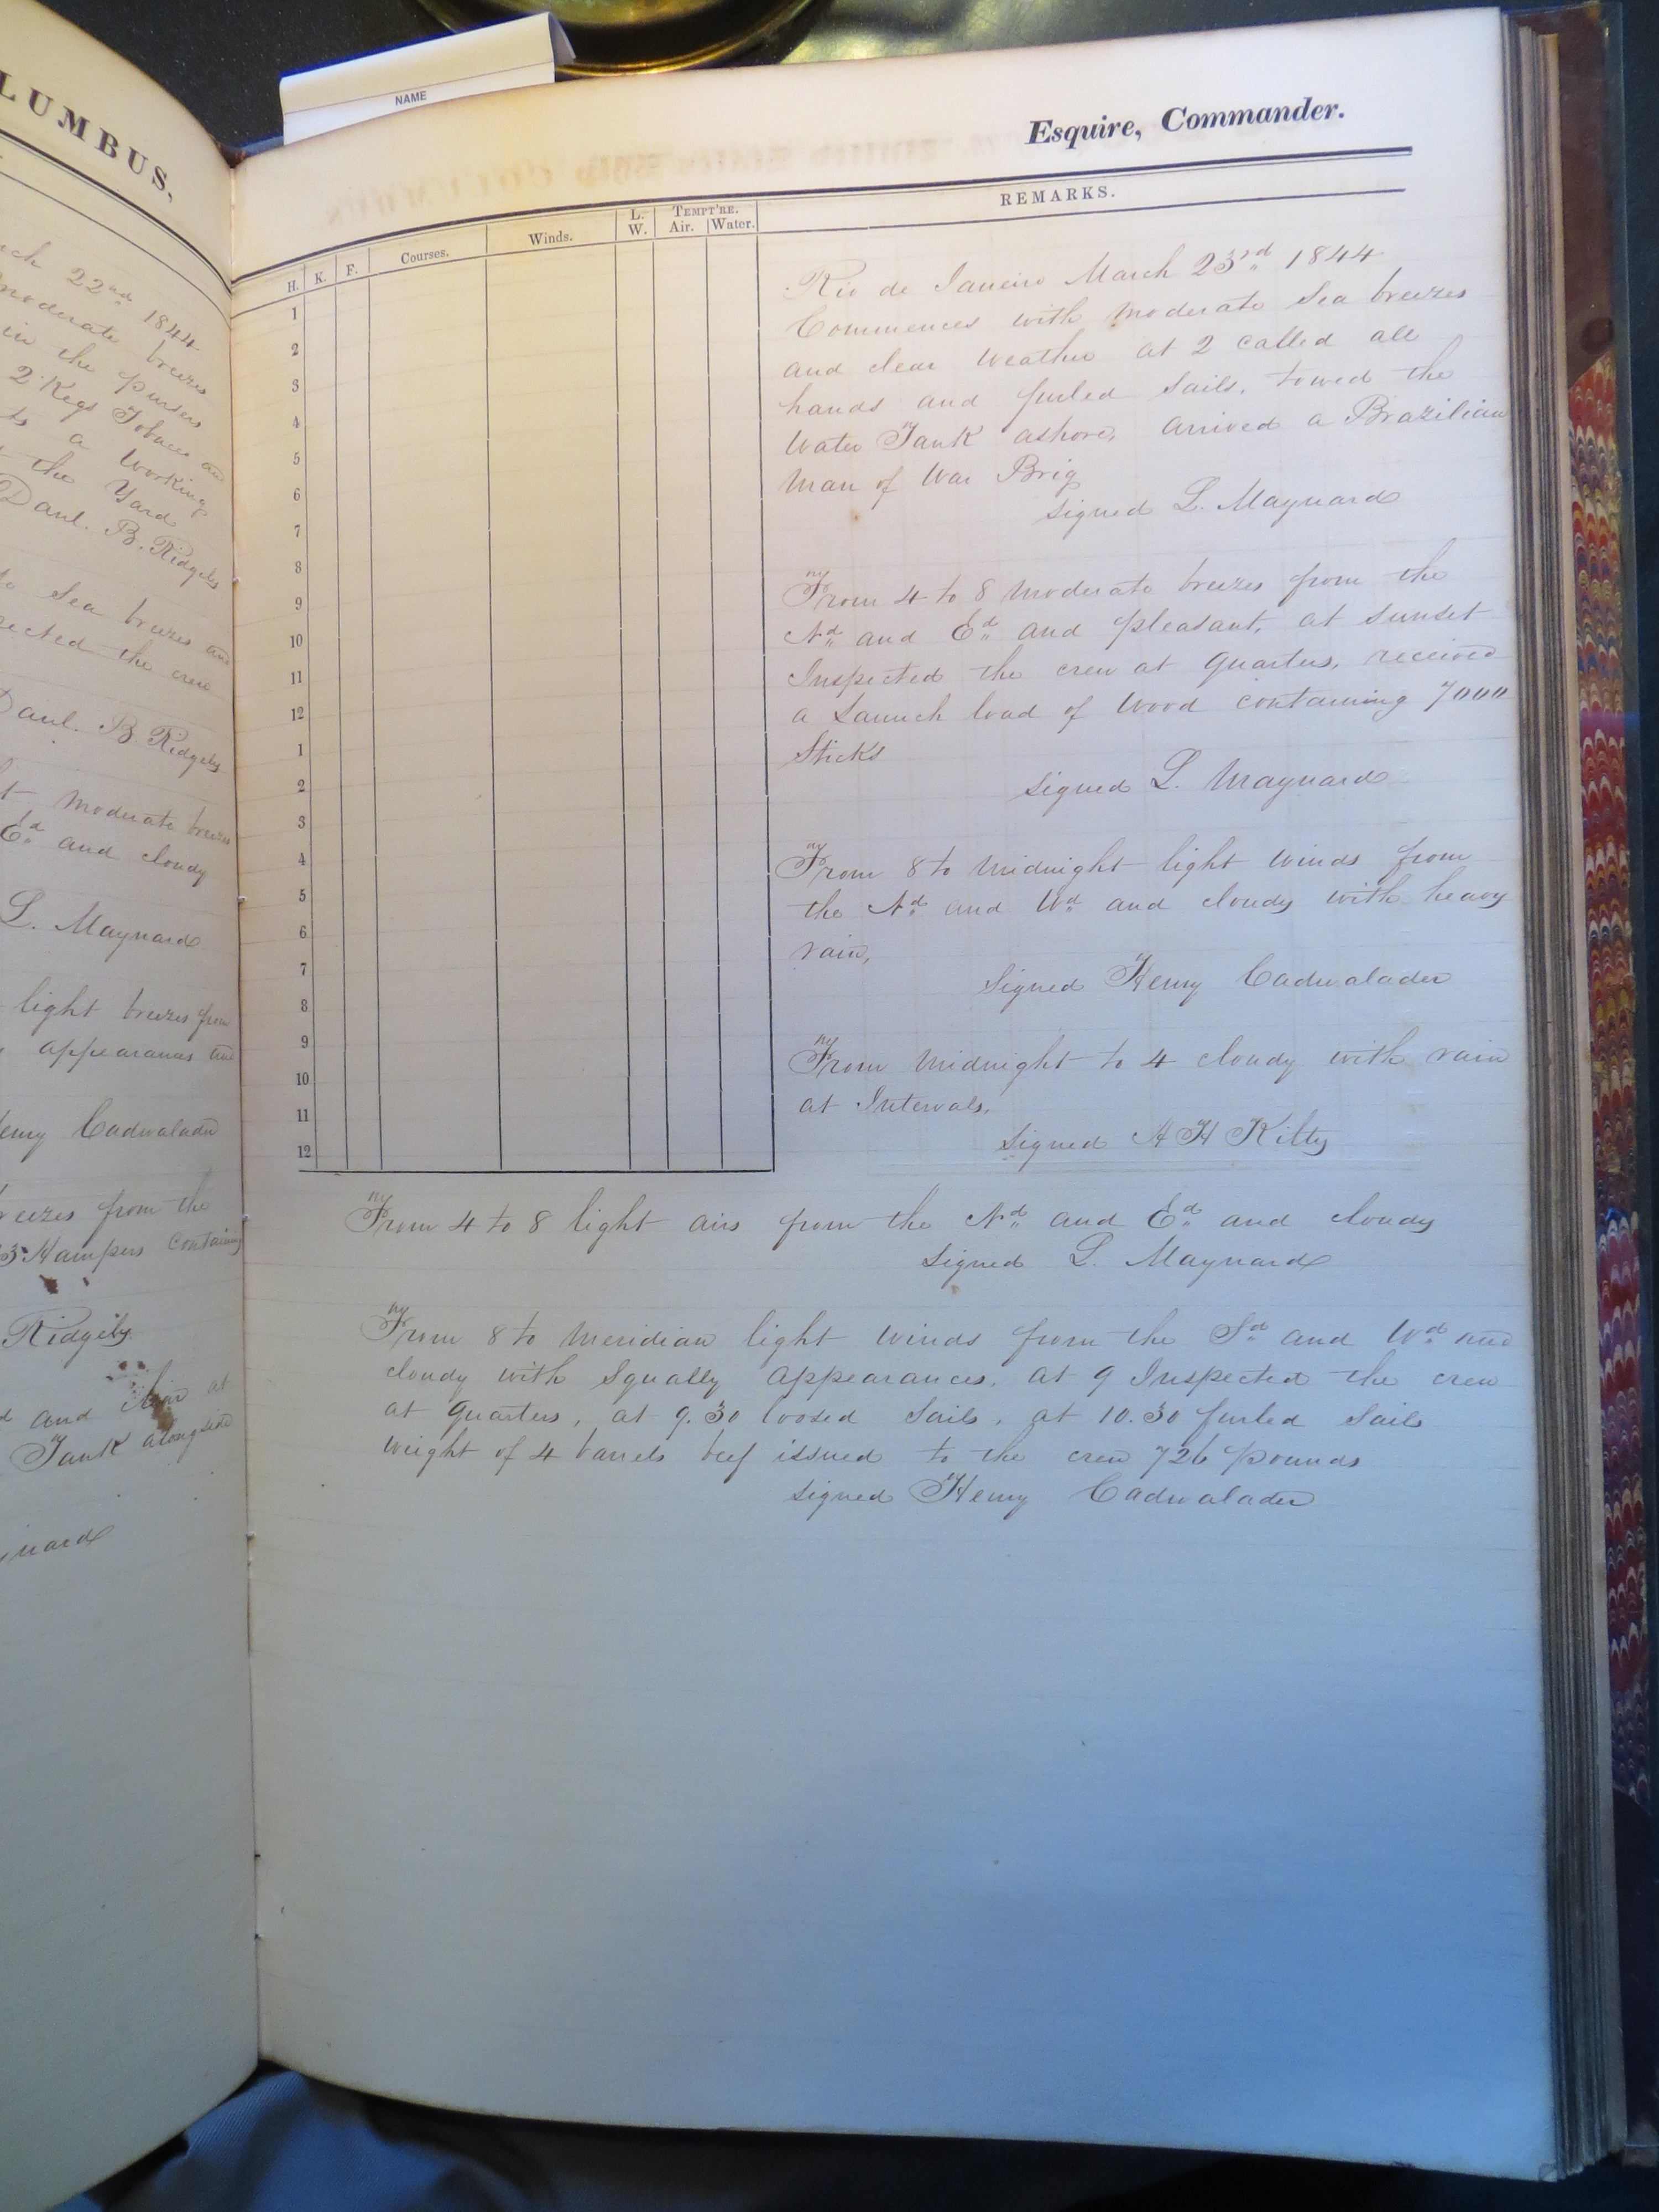 LUMBUS,
22nd 1844
moderate breezes
in the pursers
2 Kegs Tobacco and
to a working
the Yard
Danl. B. Ridgely
Sea breezes and
the crew
Danl. B. Ridgely
moderate breezes
Ed and cloudy
L. Maynard
light breezes from
appearances and
Cadwalader
from the
Hampers containing
Ridgely
and clear at
Tank alongside
NAME
Esquire, Commander.
H. K. F. Courses. Winds. L. W. TEMPT'RE. Air. Water. REMARKS.
1
2
3
4
5
6
7
8
9
10
11
12
1
2
3
4
5
6
7
8
9
10
11
12
Rio de Janeiro March 23rd 1844
Commences with moderate Sea breezes
and clear weather at 2 called all
hands and furled Sails, towed the
Water Tank ashore, arrived a Brazilian
Man of War Brig
Signed L. Maynard
From 4 to 8 moderate breezes from the
Nd and Ed and pleasant, at sunset
Inspected the crew at quarters, received
a Launch load of Wood containing 7000
Sticks
Signed L. Maynard
From 8 to Midnight light winds from
the Nd and Wd and cloudy with heavy
rain,
Signed Henry Cadwalader
From Midnight to 4 cloudy with rain
at Intervals,
Signed A H Kilty
From 4 to 8 light airs from the Nd and Ed and cloudy
Signed L. Maynard
From 8 to Meridian light winds from the Sd and Wd and
cloudy with Squally appearances, at 9 Inspected the crew
at quarters, at 9.30 loosed Sails, at 10.30 furled Sails
weight of 4 barrels beef issued to the crew 726 pounds
Signed Henry Cadwalader